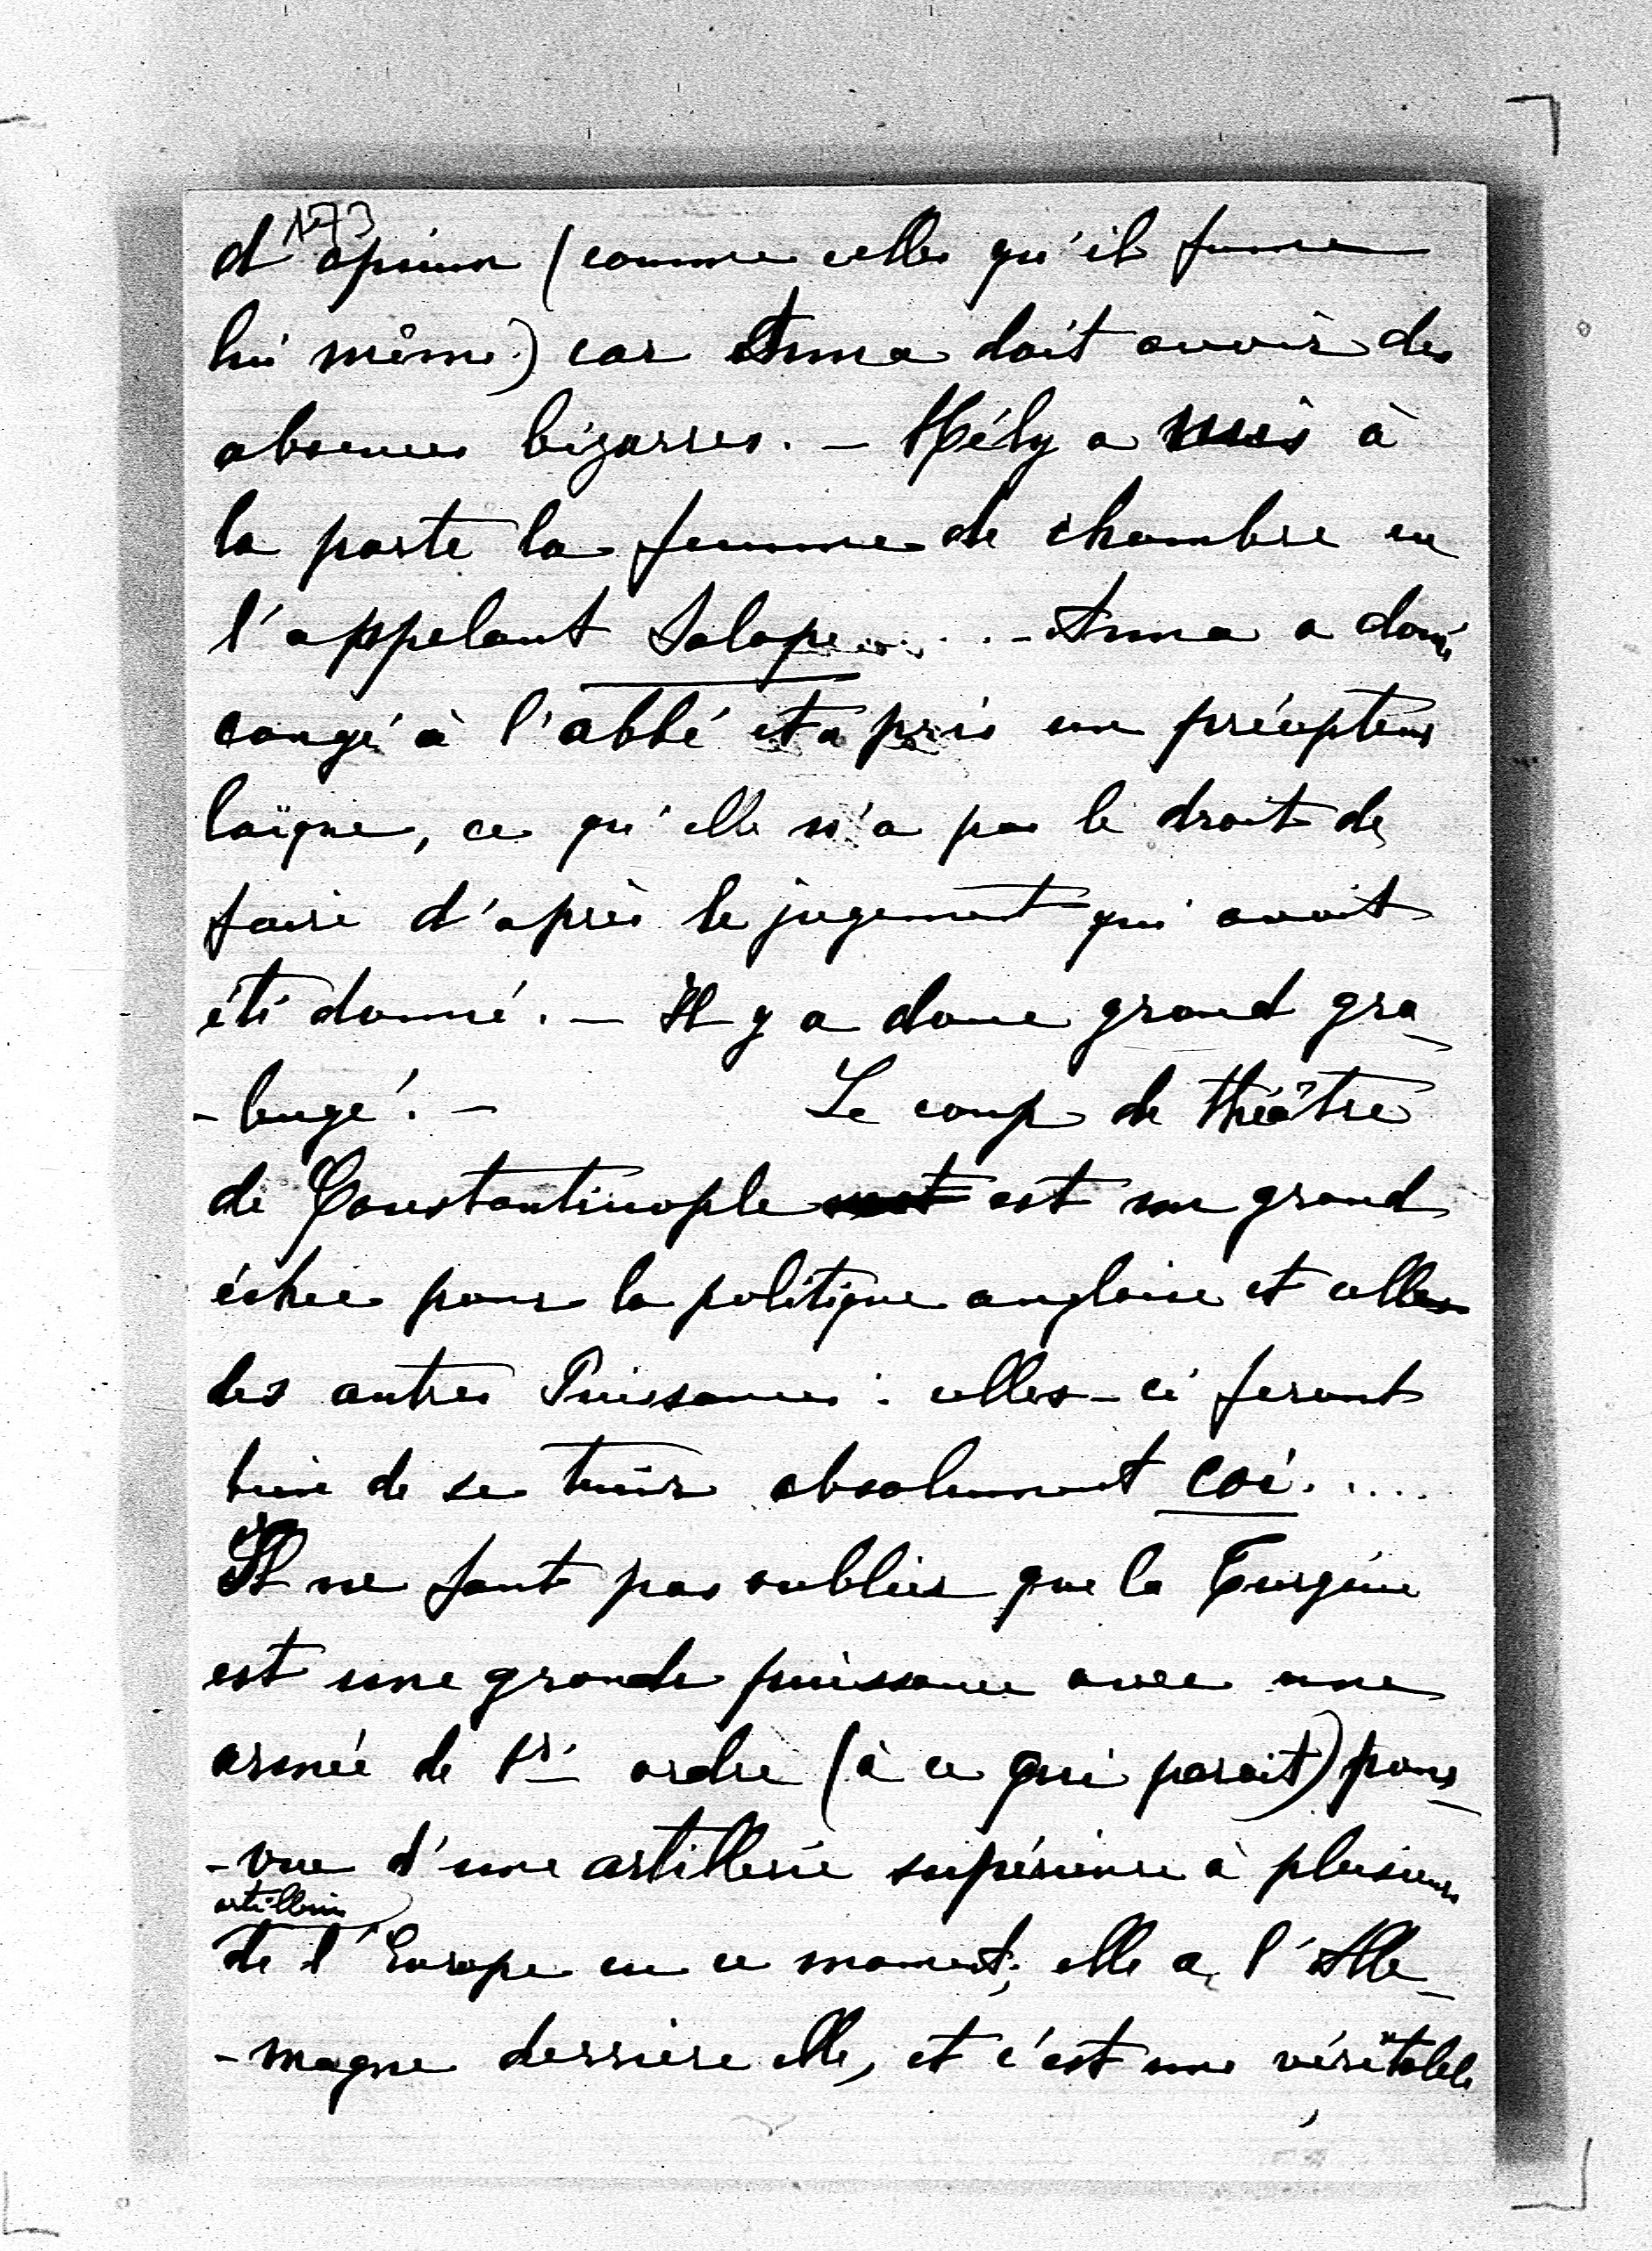 173
d'opium (comme celles qu'il fume
lui même) car Anna doit avoir des
absences bizarres. – Hély a mis à
la porte la femme de chambre en
l'appelant Salope ..... – Anna a donné
congé à l'abbé et a pris un précepteur
laïque, ce qu'elle n'a pas le droit de
faire d'après le jugement qui avait
été donné. – Il y a donc grand gra-
-buge! – Le coup de théâtre
de Constantinople est un grand
échec pour la politique anglaise et celles
des autres Puissances : celles-ci feront
bien de se tenir absolument coi.....
Il ne faut pas oublier que la Turquie
est une grande puissance avec une
armée de 1er ordre (à ce qui parait) pour-
-vue d'une artillerie supérieure à plusieurs
artilleries
de l'Europe en ce moment; elle a l'Alle-
-magne derriere elle, et c'est une véritable